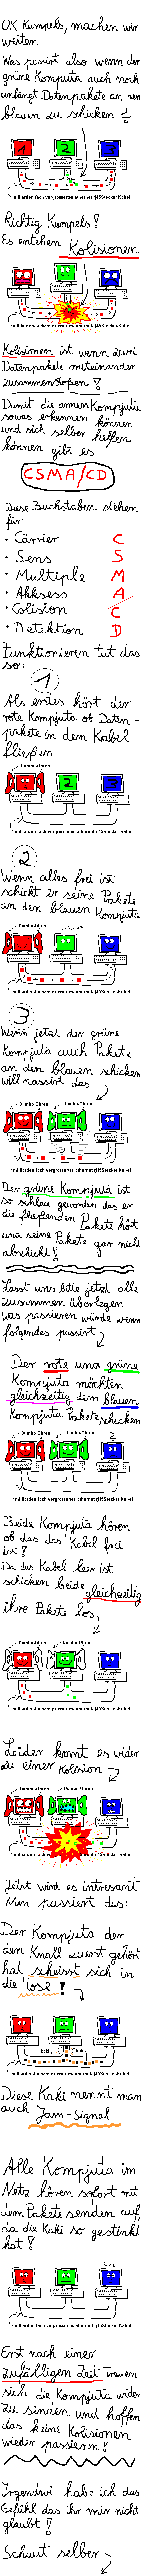 OK Kumpels, machen wir
weiter.
Was passirt also wenn der
grüne Komputa auch noch
anfängt Datenpakete an den
blauen zu schicken ?
1 2 3
milliarden-fach vergrössertes athernet-rj45Stecker-Kabel
Richtig Kumpels!
Es entehen Kolisionen
milliarden-fach vergrössertes athernet-rj45Stecker-Kabel
Kolisionen ist wenn zwei
Datenpakete miteinander
zusammenstoßen !
Damit die armen Kompjuta
sowas erkennen können
und sich selber helfen
können gibt es
CSMA/CD
Diese Buchstaben stehen
für:
• Cärrier C
• Sens S
• Multiple M
• Akksess A
• Colision C
• Detektion D
Funktionieren tut das
so:
1
Als erstes hört der
rote Kompjuta ob Daten-
pakete in dem Kabel
fließen.
Dumbo-Ohren
1 2 3
milliarden-fach vergrössertes athernet-rj45Stecker-Kabel
2
Wenn alles frei ist
schickt er seine Pakete
an den blauen Kompjuta
Dumbo-Ohren
zzzz
milliarden-fach vergrössertes athernet-rj45Stecker-Kabel
3
Wenn jetzt der grüne
Kompjuta auch Pakete
an den blauen schicken
will passirt das
Dumbo-Ohren Dumbo-Ohren
milliarden-fach vergrössertes athernet-rj45Stecker-Kabel
Der grüne Kompjuta ist
so schlau geworden das er
die fließenden Pakete hört
und seine Pakete gar nicht
abschikt!
Lasst uns bitte jetzt alle
zusammen überlegen
was passieren würde wenn
folgendes passirt
Der rote und grüne
Kompjuta möchten
gleichzeitig dem blauen
Kompjuta Pakete schicken
Dumbo-Ohren Dumbo-Ohren ?
milliarden-fach vergrössertes athernet-rj45Stecker-Kabel
Beide Kompjuta hören
ob das das Kabel frei
ist!
Da das Kabel leer ist
schicken beide gleichzeitig
ihre Pakete los,
Dumbo-Ohren Dumbo-Ohren
milliarden-fach vergrössertes athernet-rj45Stecker-Kabel
Leider komt es wider
zu einer Kolision
Dumbo-Ohren Dumbo-Ohren
milliarden-fach vergrössertes athernet-rj45Stecker-Kabel
Jetzt wird es intresant
Nun passiert das:
Der Kompjuta der
den Knall zuerst gehört
hat scheisst sich in
die Hose !
kaki kaki
milliarden-fach vergrössertes athernet-rj45Stecker-Kabel
Diese Kaki nennt man
auch Jam-Signal
Alle Kompjuta im
Netz hören sofort mit
dem Pakete-senden auf,
da die Kaki so gestinkt
hat !
zzz
milliarden-fach vergrössertes athernet-rj45Stecker-Kabel
Erst nach einer
zufälligen Zeit trauen
sich die Kompjuta wider
zu senden und hoffen
das keine Kolisionen
wieder passieren !
Irgendwi habe ich das
Gefühl das ihr mir nicht
glaubt !
Schaut selber